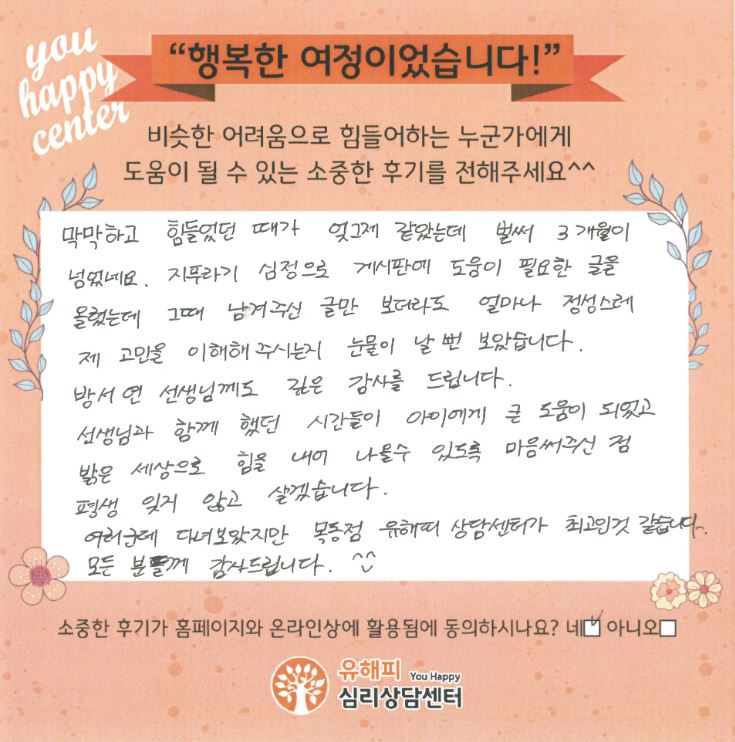 you
happy
center
“행복한 여정이었습니다!”
비슷한 어려움으로 힘들어하는 누군가에게
도움이 될 수 있는 소중한 후기를 전해주세요^^
막막하고 힘들었던 때가 엊그제 같았는데 벌써 3개월이
넘었네요. 지푸라기 심정으로 게시판에 도움이 필요한 글을
올렸는데 그때 남겨주신 글만 보더라도 얼마나 정성스레
제 고민을 이해해 주시는지 눈물이 날 뻔 보았습니다.
방서연 선생님께도 깊은 감사를 드립니다.
선생님과 함께 했던 시간들이 아이에게 큰 도움이 되었고
밝은 세상으로 힘을 내어 나올수 있도록 마음써주신 점
평생 잊지 않고 살겠습니다.
여러군데 다녀보았지만 목동점 유해피 상담센터가 최고인것 같습니다.
모든 분들께 감사드립니다. ^^
소중한 후기가 홈페이지와 온라인상에 활용됨에 동의하시나요? 네☑ 아니오□
유해피 You Happy
심리상담센터